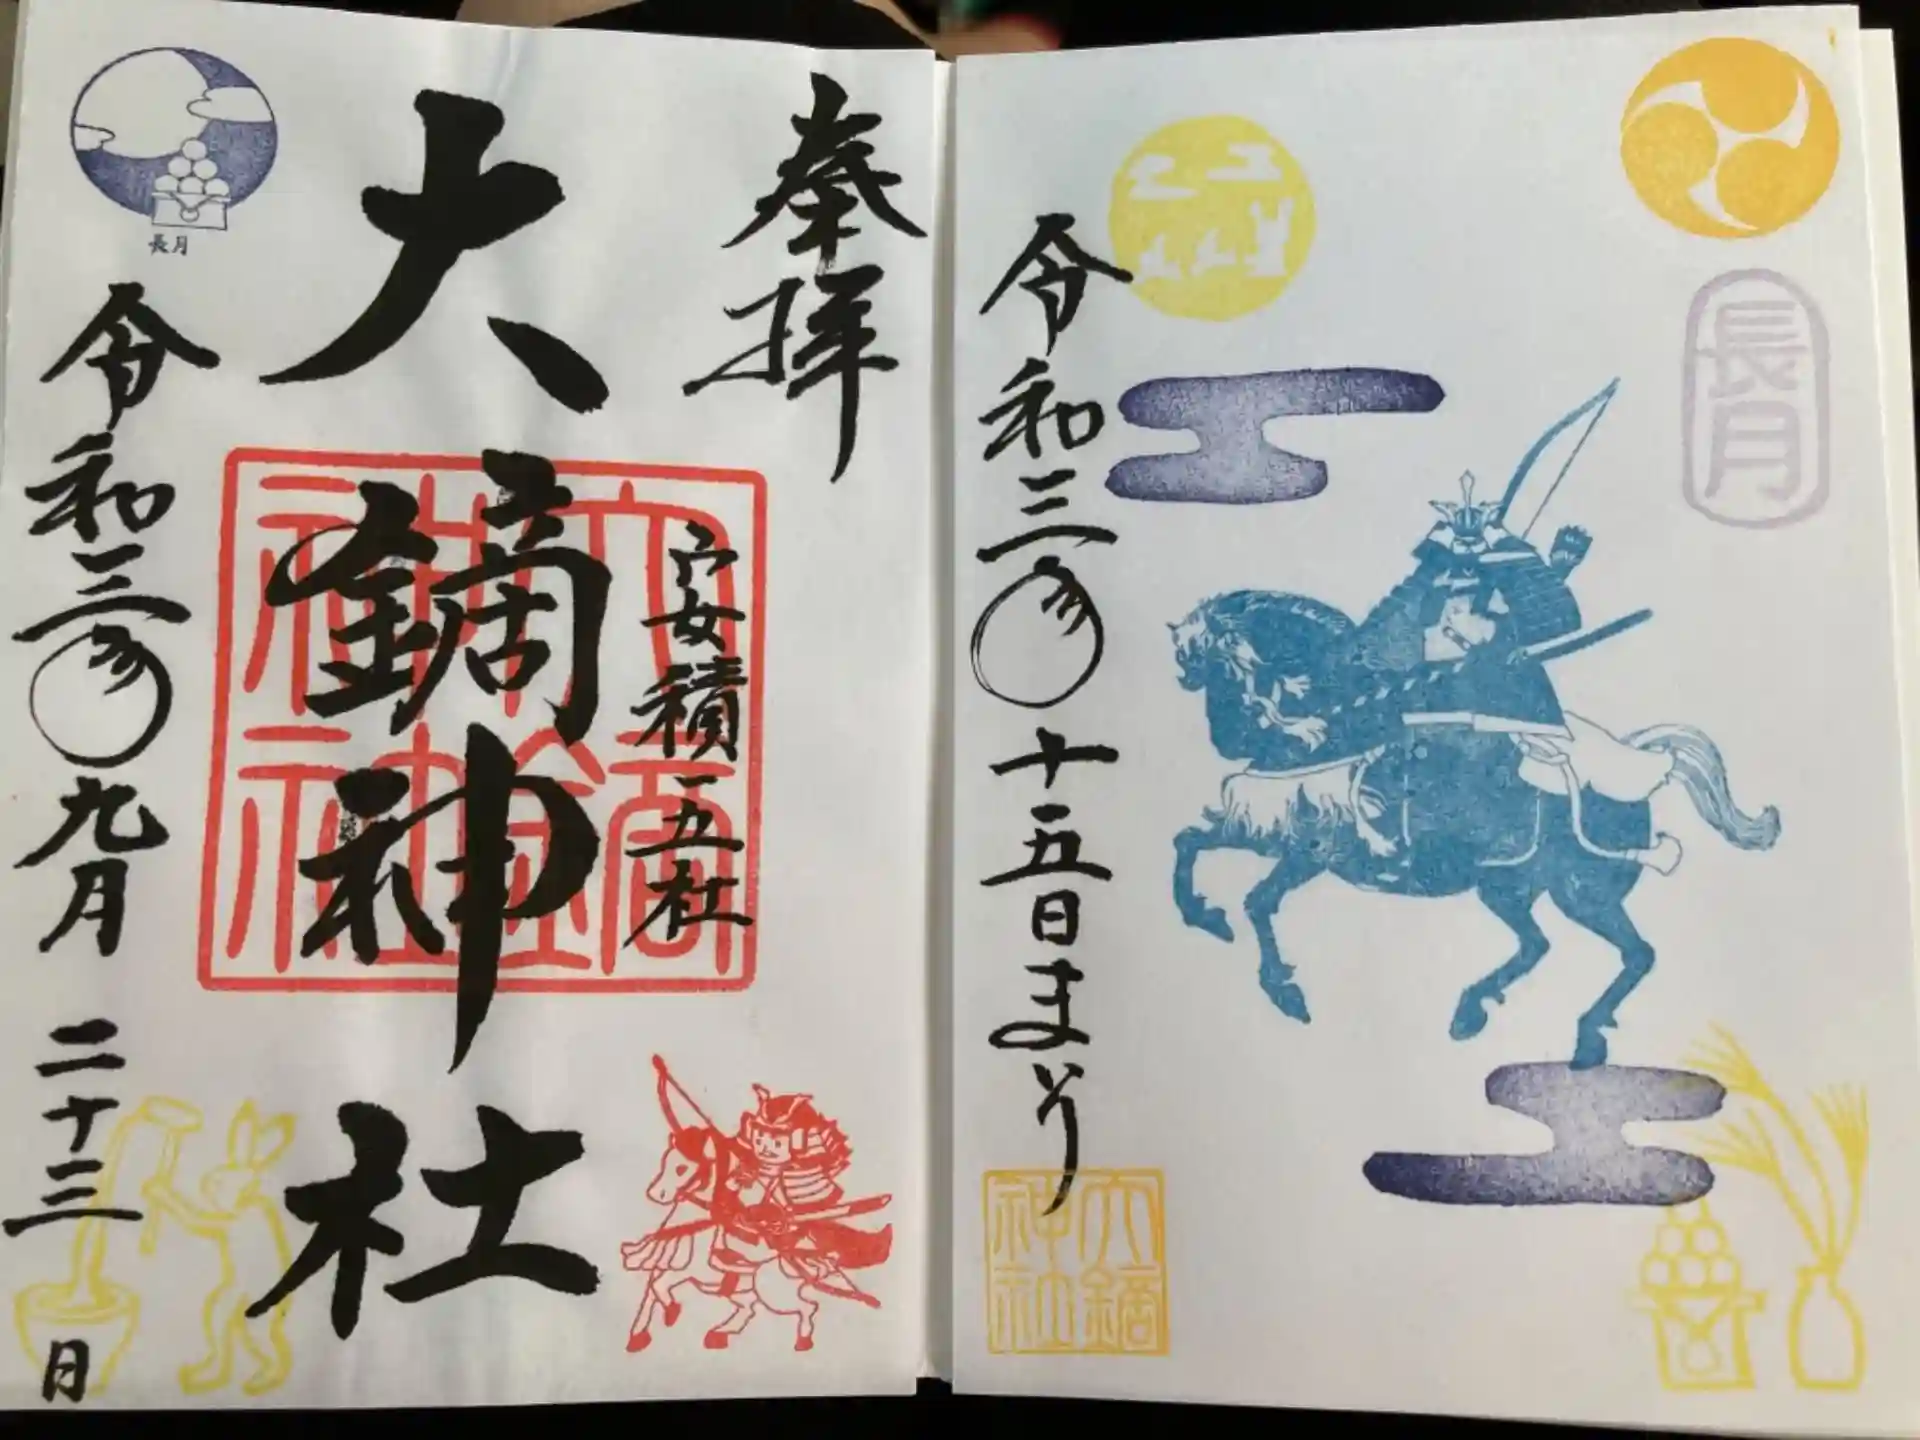 長月
令和三年
十五日まいり
大鏑神社
奉拝
安積一五社
大鏑神社
大鏑神社
令和三年九月二十三日
長月